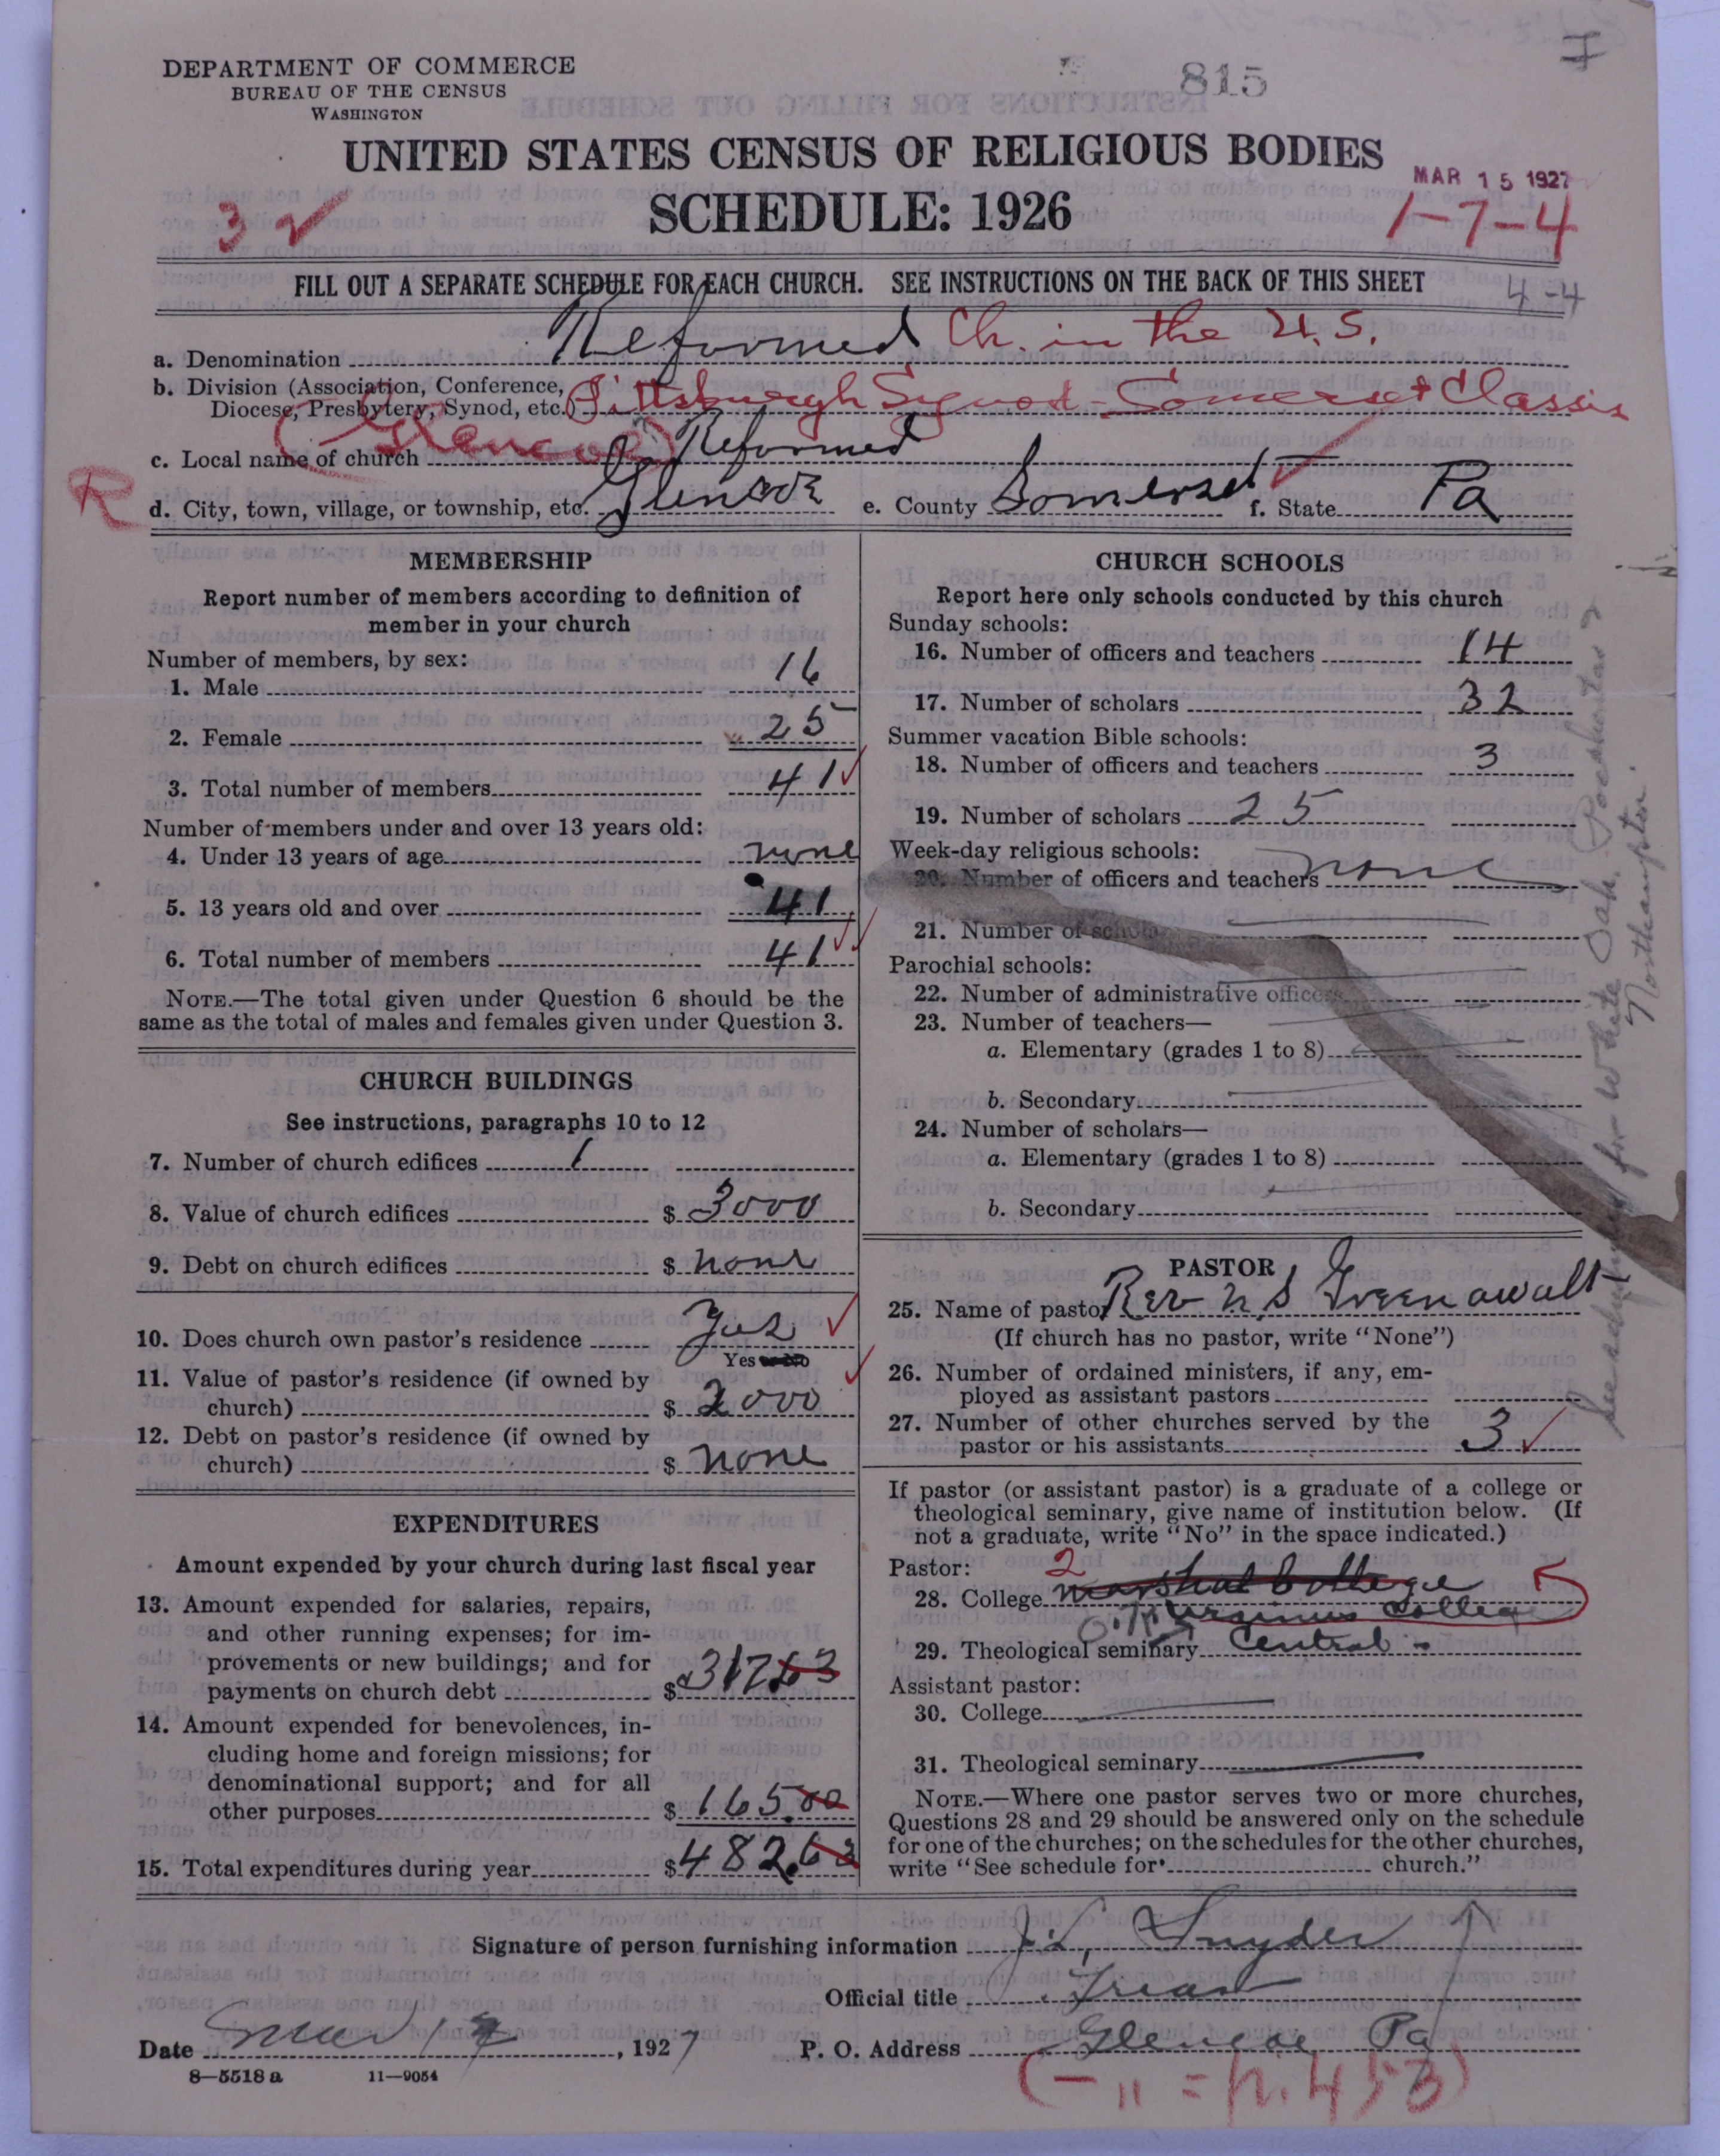 DEPARTMENT OF COMMERCE
BUREAU OF THE CENSUS
WASHINGTON
815
UNITED STATES CENSUS OF RELIGIOUS BODIES
SCHEDULE: 1926
MAR 15 1927
3 ✓
1-7-4
FILL OUT A SEPARATE SCHEDULE FOR EACH CHURCH. SEE INSTRUCTIONS ON THE BACK OF THIS SHEET
4-4
a. Denomination Reformed Ch. in the U.S.
b. Division (Association, Conference, Diocese, Presbytery, Synod, etc.) Pittsburgh Synod - Somerset Classis
(Glencoe)
c. Local name of church Reformed
R
d. City, town, village, or township, etc. Glencoe e. County Somerset f. State Pa
MEMBERSHIP
Report number of members according to definition of
member in your church
Number of members, by sex:
1. Male 16
2. Female 25
3. Total number of members 41 ✓
Number of members under and over 13 years old:
4. Under 13 years of age none
5. 13 years old and over 41
6. Total number of members 41 ✓✓
NOTE.—The total given under Question 6 should be the
same as the total of males and females given under Question 3.
CHURCH BUILDINGS
See instructions, paragraphs 10 to 12
7. Number of church edifices 1
8. Value of church edifices $ 3000
9. Debt on church edifices $ none
10. Does church own pastor's residence Yes ✓
Yes or No
11. Value of pastor's residence (if owned by
church) $ 2000 ✓
12. Debt on pastor's residence (if owned by
church) $ none
EXPENDITURES
Amount expended by your church during last fiscal year
13. Amount expended for salaries, repairs,
and other running expenses; for im-
provements or new buildings; and for
payments on church debt $ 317 63
14. Amount expended for benevolences, in-
cluding home and foreign missions; for
denominational support; and for all
other purposes $ 165.00
15. Total expenditures during year $ 482.63
CHURCH SCHOOLS
Report here only schools conducted by this church
Sunday schools:
16. Number of officers and teachers 14
17. Number of scholars 32
Summer vacation Bible schools:
18. Number of officers and teachers 3
19. Number of scholars 25
Week-day religious schools:
20. Number of officers and teachers none
21. Number of scholars
Parochial schools:
22. Number of administrative officers
23. Number of teachers—
a. Elementary (grades 1 to 8)
b. Secondary
24. Number of scholars—
a. Elementary (grades 1 to 8)
b. Secondary
PASTOR
25. Name of pastor Rev N S Greenawalt
(If church has no pastor, write "None")
26. Number of ordained ministers, if any, em-
ployed as assistant pastors
27. Number of other churches served by the
pastor or his assistants 3 ✓
If pastor (or assistant pastor) is a graduate of a college or
theological seminary, give name of institution below. (If
not a graduate, write "No" in the space indicated.)
Pastor: 2
28. College Marshal College
Ursinus College
29. Theological seminary Central
Assistant pastor:
30. College
31. Theological seminary
NOTE.—Where one pastor serves two or more churches,
Questions 28 and 29 should be answered only on the schedule
for one of the churches; on the schedules for the other churches,
write "See schedule for church."
See schedules for White Oak
Northampton.
Signature of person furnishing information J. L. Snyder
Official title Treas
Date Mar 1 , 1927 P. O. Address Glencoe Pa
8—5518 a 11—9054
(- 11 = p. 453)